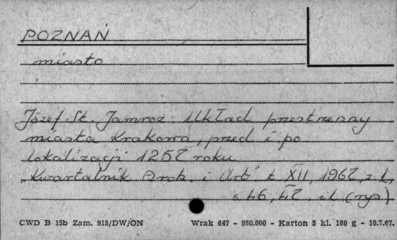 POZNAŃ
miasto
Józef St. Jamroz: Układ przestrzenny
miasta Krakowa, przed i po
lokalizacji 1257 roku
"Kwartalnik Arch. i Urb." t. XII, 1967, z. 1,
s. il (ryp)
CWD B 15b Zam. 915/DW/ON Wrak 647 - 980.000 - Karton 5 kl. 180 g - 10.7.67.